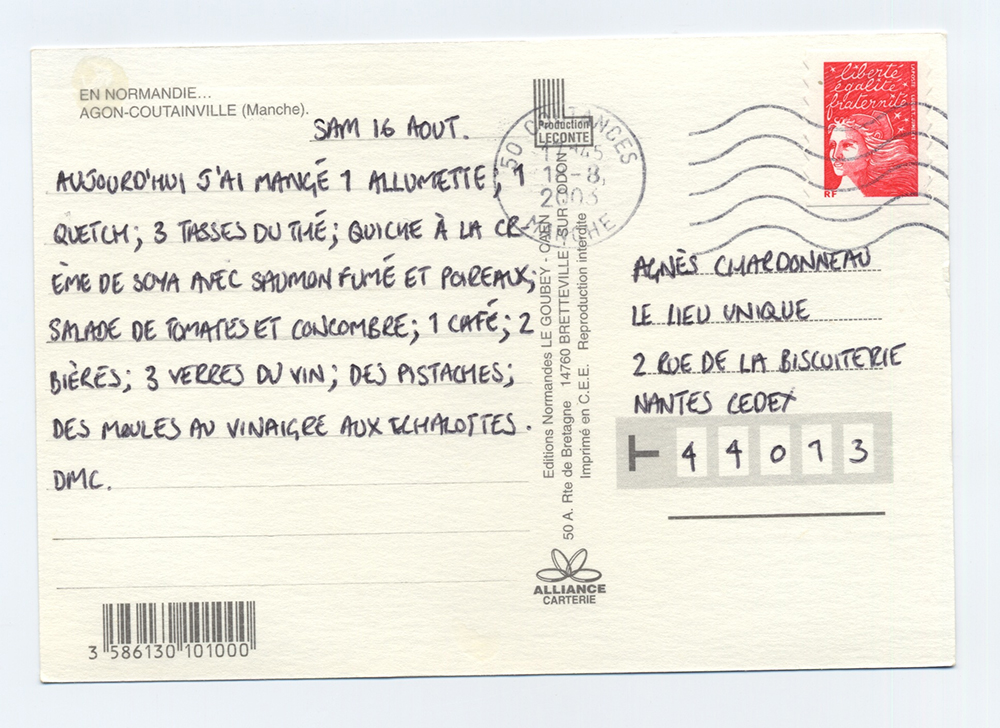 EN NORMANDIE...
AGON-COUTAINVILLE (Manche).
SAM 16 AOUT.
AUJOURD'HUI J'AI MANGÉ 1 ALLUMETTE; 1
QUETCH; 3 TASSES DU THÉ; QUICHE À LA CR
ÈME DE SOYA AVEC SAUMON FUMÉ ET POIREAUX;
SALADE DE TOMATES ET CONCOMBRE; 1 CAFÉ; 2
BIÈRES; 3 VERRES DU VIN; DES PISTACHES;
DES MOULES AU VINAIGRE AUX ECHALOTTES.
DMC.
3 586130 101000
Production
LECONTE
50 COUTANCES
18-8,
2003
MANCHE
Editions Normandes LE GOUBEY - CAEN
50 A. Rte de Bretagne 14760 BRETTEVILLE SUR ODON
Imprimé en C.E.E. Reproduction interdite
ALLIANCE
CARTERIE
liberté
égalité
fraternité
RF
AGNÈS CHARDONNEAU
LE LIEU UNIQUE
2 RUE DE LA BISCUITERIE
NANTES CEDEX
44013